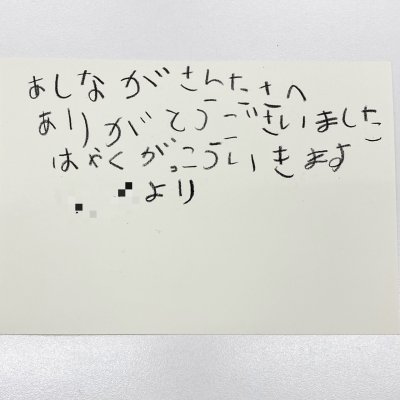 あしながさんたさへ
ありがとうございました
はやくがっこういきます
より